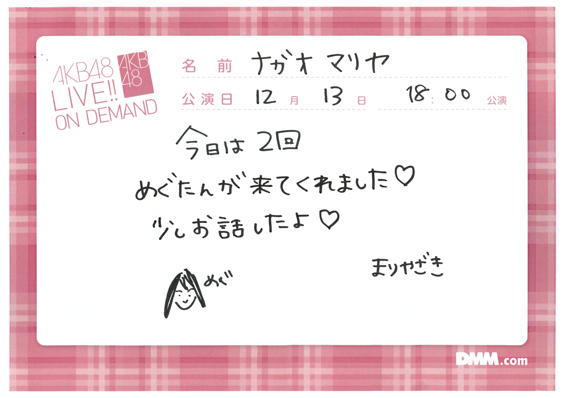 AKB48
LIVE!!
ON DEMAND
AKB
48
名前 ナガオ マリヤ
公演日 12月 13日 18:00 公演
今日は 2回
めぐたんが来てくれました♡
少しお話したよ♡
めぐ
まりやぎき
DMM.com